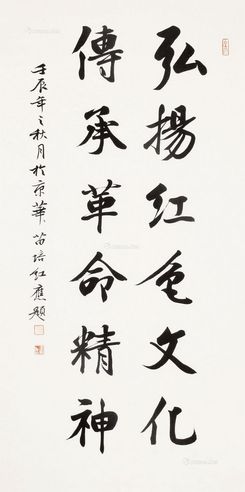 弘揚红色文化
傳承革命精神
壬辰年之秋月於京華苗培红應題